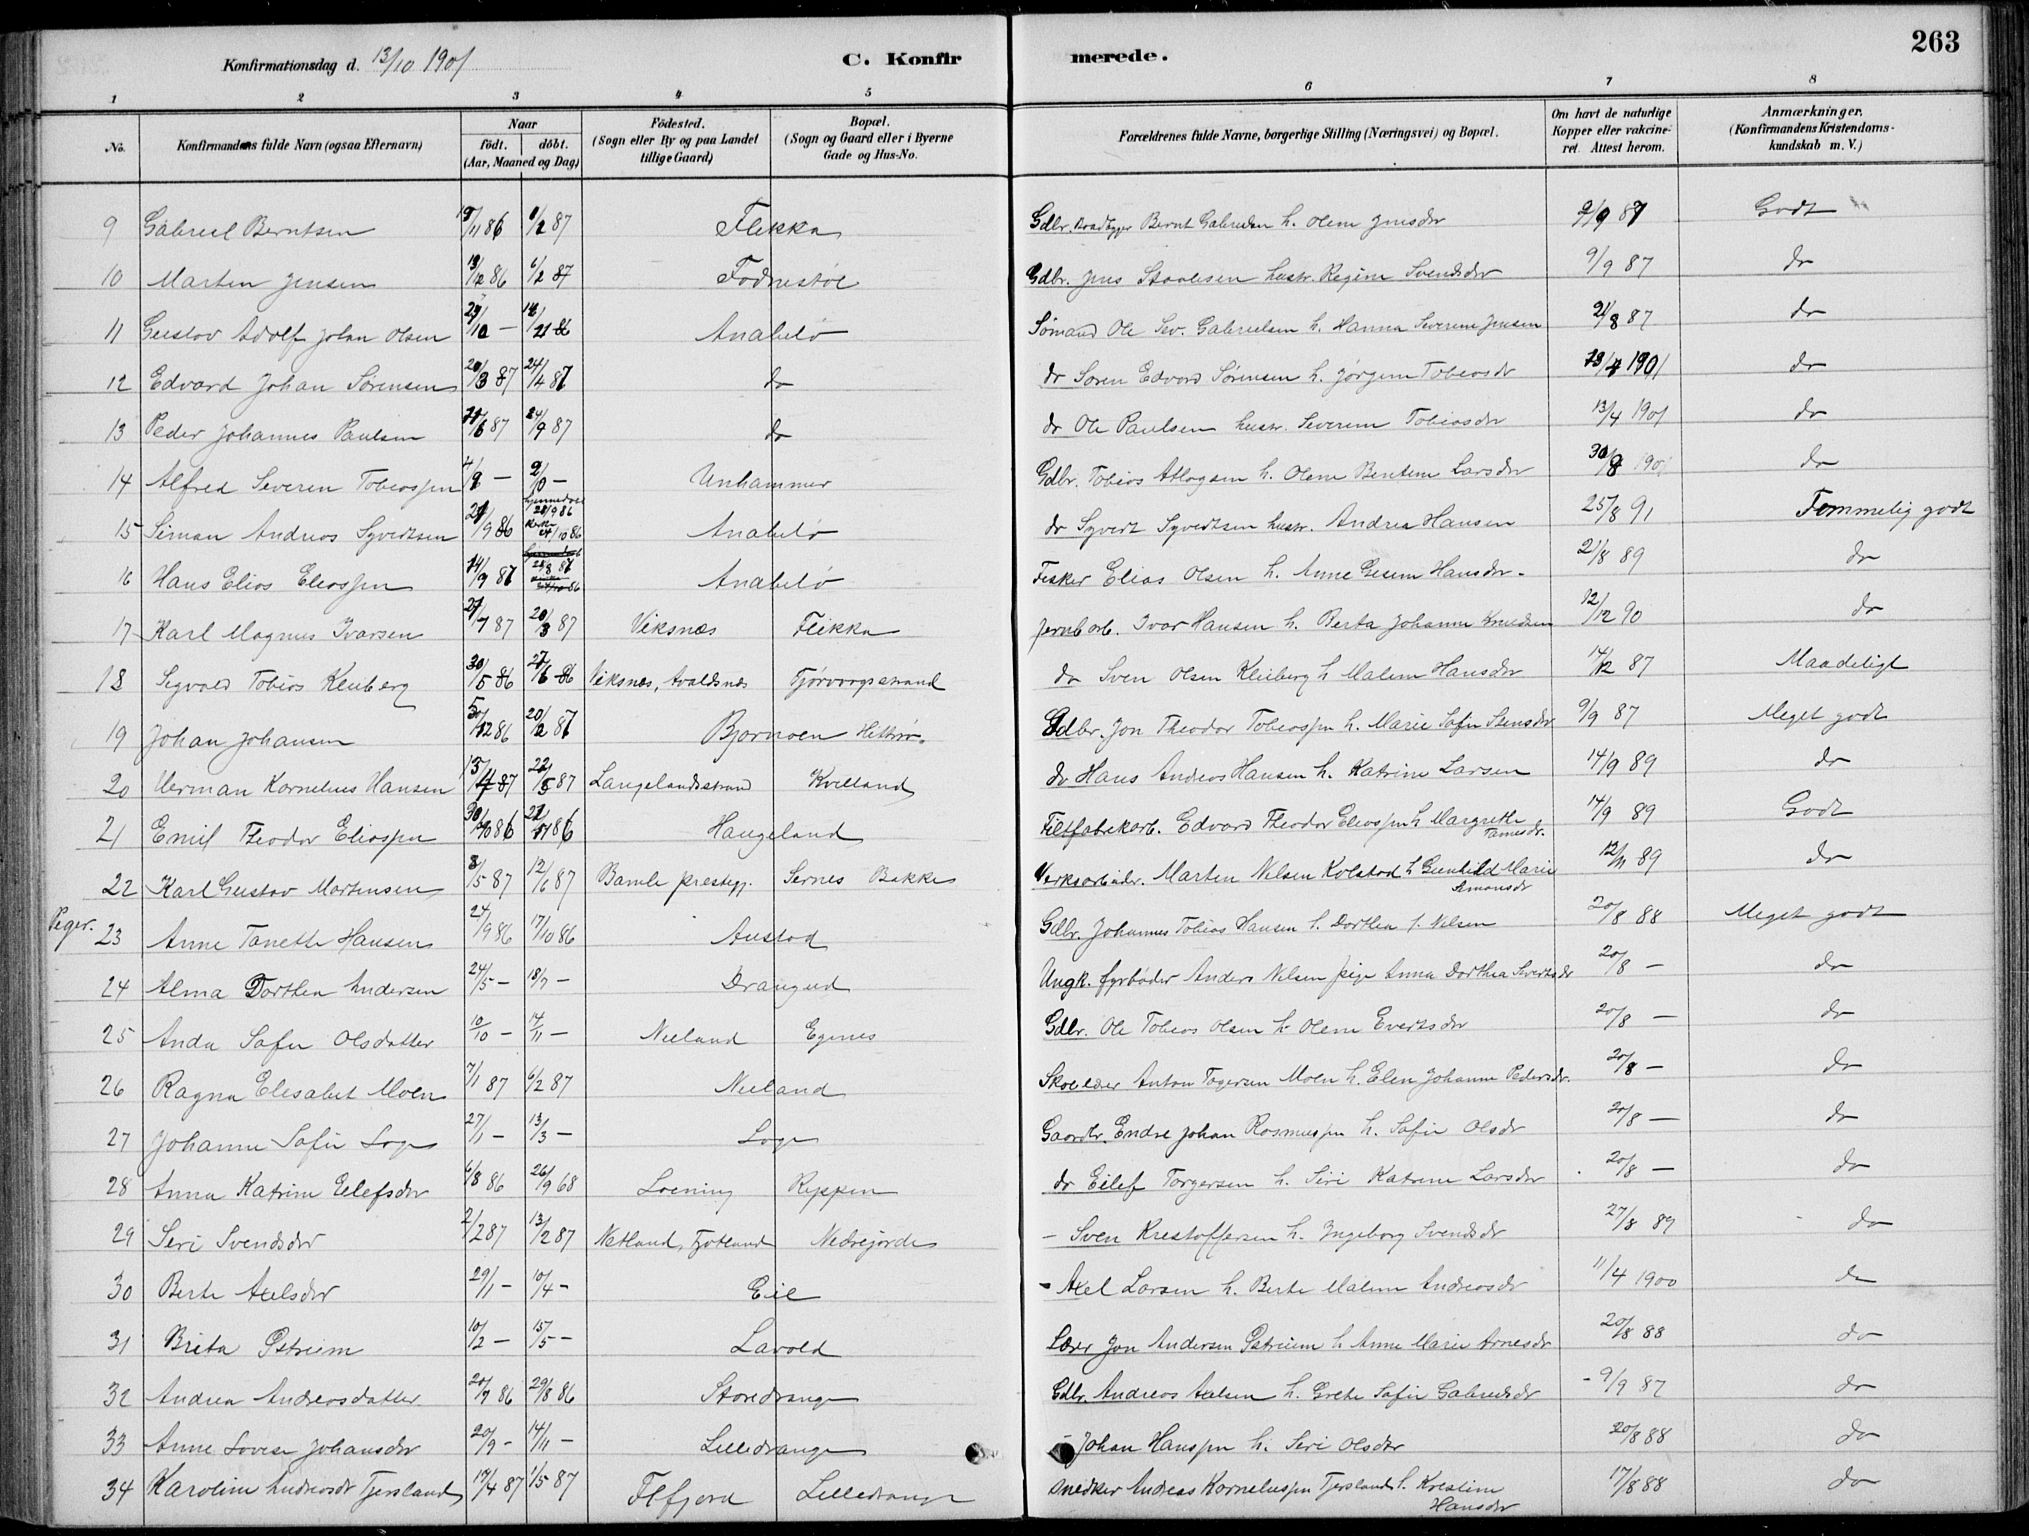 263
Konfirmationsdag d. 13/10 1901
C. Konfirmerede.
1 2 3 4 5 6 7 8
No. Konfirmandens fulde Navn (ogsaa Efternavn) Naar födt. döbt. (Aar, Maaned og Dag) Födested. (Sogn eller By og paa Landet tillige Gaard) Bopæl. (Sogn og Gaard eller i Byerne Gade og Hus-No. Forældrenes fulde Navne, borgerlige Stilling (Næringsvei) og Bopæl. Om havt de naturlige Kopper eller vakcineret. Attest herom. Anmærkninger, (Konfirmandens Kristendomskundskab m. V.)
9 Gabriel Berntsen 86 1/2 87 Flikka Gdbr. Bernt Gabrielsen h. Olene Jensdr Godt
10 Marten Jensen 86 6/2 87 Fodnestøl Gdbr. Jens Staalesen hustr. Regine Svendsdr 9/9 87 do
11 Gustav Adolf Johan Olsen Anabelø Sømand Ole Sev. Gabrielsen h. Hanna Severine Jensen 21/8 87 do
12 Edvard Johan Sørensen 87 24/4 87 do do Soren Edvard Sørensen h. Jørgine Tobiasdr 1901 do
13 Peder Johannes Paulsen 87 24/9 87 do do Ole Paulsen hustr. Severine Tobiasdr 13/4 1901 do
14 Alfred Severin Tobiassen Unhammer Gdbr. Tobias Atlagsen h. Olene Bentine Larsdr do
15 Siman Andreas Syvertsen 86 Anabelø do Syvert Syvertsen hustr. Andrea Hansen 25/8 91 Temmelig godt
16 Hans Elias Eliassen 87 Anabelø Fisker Elias Olsen h. Anne Gesine Hansdr. 21/8 89 do
17 Karl Magnus Ivarsen 87 20/3 87 Viksnæs Flikka Jernb arb. Ivar Hansen h. Berta Johanne Knudsen 12/12 90 do
18 Sigvald Tobias Kleiberg 30/5 86 Viksnæs, Avaldsnæs Tjørvaagstrand do Sven Olsen Kleiberg h Malene Hansdr 14/12 87 Maadeligt
19 Johan Johansen 86 20/2 87 Bjørnøen Hitterø. Gdbr. Jon Theodor Tobiassen h. Marie Sofie Stensdr 9/9 87 Meget godt
20 Herman Kornelius Hansen 87 22/5 87 Langelandsstrand Kvelland do Hans Andreas Hansen h. Katrine Larsen 14/9 89 do
21 Emil Theodor Eliassen 86 86 Haugeland Filtfabrikarb. Edvard Theodor Eliassen h Margrethe Tønnesdr. 14/9 89 Godt
22 Karl Gustav Mortensen 3/5 87 12/6 87 Bamle prestegj. Sirnes Bakke Verksarbeider. Marten Nilsen Kolstad h Gunhild Marie Amonsdr 12/11 89 do
Piger.
23 Anne Tanette Hansen 24/9 86 17/10 86 Austad Gdbr. Johannes Tobias Hansen h. Dorthea f. Nilsen 20/8 88 Meget godt
24 Alma Dorthea Andersen 24/5 – 18/7 – Drangeid Ungk. fyrbøder Anders Nilsen pige Anna Dorthea Sivertsdr 20/8 – do
25 Anda Sofie Olsdatter 10/10 – 14/11 – Nuland Egenes Gdbr. Ole Tobias Olsen h. Olene Evertsdr 20/8 – do
26 Ragna Elisabet Moen 7/1 87 6/2 87 Nuland Skolelærer Anton Togersen Moen h. Elen Johanne Pedersdr. 20/8 – do
27 Johanne Sofie Loge 27/1 – 13/3 – Loge Gaardbr. Endre Johan Rasmussen h. Sofie Olsdr 20/8 – do
28 Anna Katrine Eilefsdr 6/8 86 26/9 68 Loening Reppen do Eilef Torgersen h. Siri Katrine Larsdr 20/8 – do
29 Siri Svendsdr 2/2 87 13/2 87 Netland, Fjotland Nedrejorde – Sven Kristoffersen h. Ingeborg Svendsdr 27/8 89 do
30 Berte Axelsdr 29/1 – 10/4 – Eie – Axel Larsen h. Berte Malene Andreasdr 11/4 1900 do
31 Brita Østreim 10/2 – 15/5 – Lavold Lærer Jon Andersen Østreim h Anne Marie Arnesdr 20/8 88 do
32 Andrea Andreasdatter 20/7 86 29/8 86 Storedrange Gdbr. Andreas Axelsen h. Grete Sofie Gabrielsdr 9/9 87 do
33 Anne Lovise Johansdr 20/9 – 14/11 – Lilledrange – Johan Hanssen h. Siri Olsdr 20/8 88 do
34 Karoline Andreasdr Tjersland 14/4 87 1/5 87 Flfjord Lilledrange Snedker Andreas Korneliussen Tjersland h. Kristine Hansdr 17/8 88 do